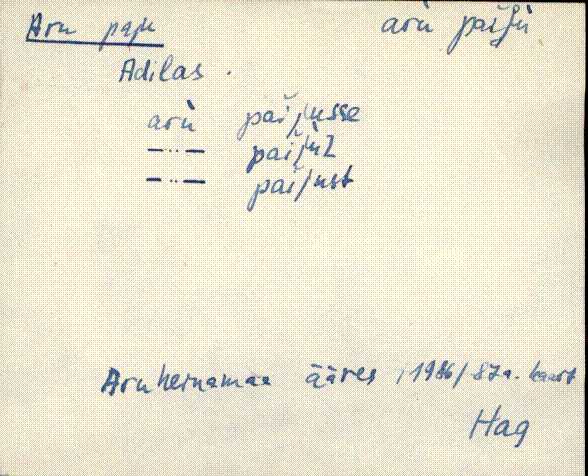 Aru paju
arù paĭjù
Adilas.
arù paĭjusse
—„— paĭjùl
—„— paĭjust
Aru heinamaa ääres, 1986/87a. kaart
Hag